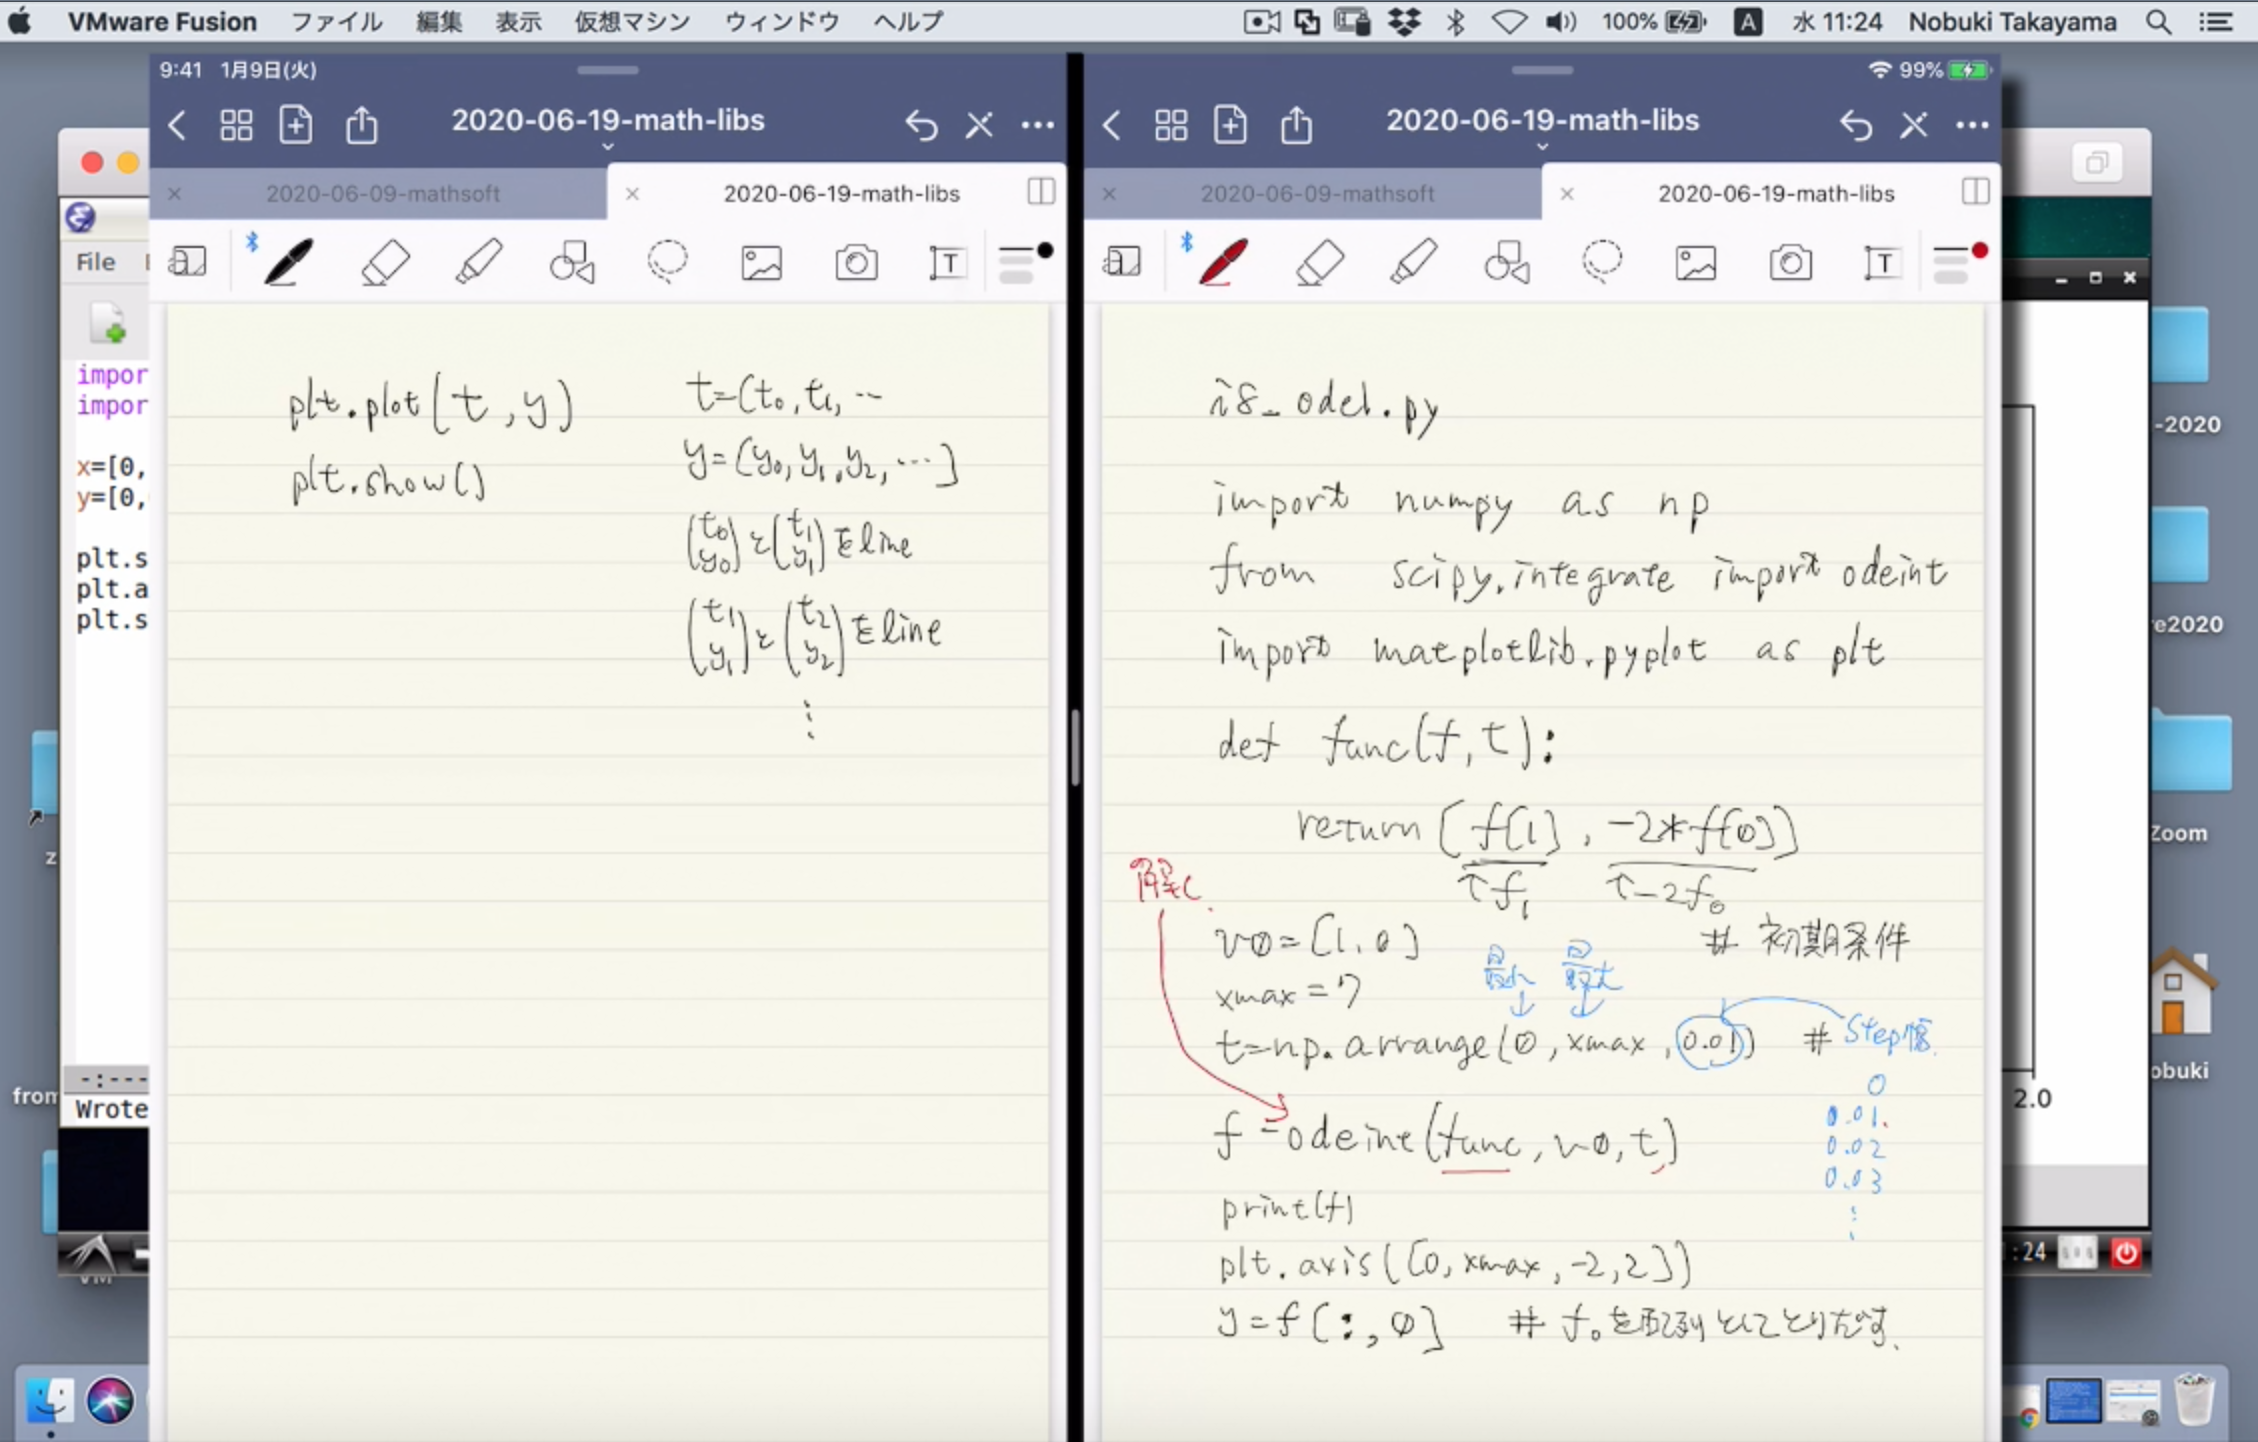 VMware Fusion ファイル 編集 表示 仮想マシン ウィンドウ ヘルプ 100% A 水 11:24 Nobuki Takayama
9:41 1月9日(火)
2020-06-19-math-libs
2020-06-09-mathsoft
2020-06-19-math-libs
File
impor
impor
x=[0,
y=[0,
plt.s
plt.a
plt.s
-:---
Wrote
from
z
VM
plt.plot(t,y)
plt.show()
t=(t₀,t₁,…
y=(y₀,y₁,y₂,…]
(t₀ y₀)と(t₁ y₁)をline
(t₁ y₁)と(t₂ y₂)をline
⋮
99%
2020-06-19-math-libs
2020-06-09-mathsoft
2020-06-19-math-libs
i8_ode1.py
import numpy as np
from scipy.integrate import odeint
import matplotlib.pyplot as plt
def func(f,t):
return [f[1], -2*f[0]]
↑f₁ ↑-2f₀
解く
v0=[1,0] # 初期条件
最小 最大
xmax=7
t=np.arrange(0,xmax,0.01) # Step幅
0
0.01
0.02
0.03
⋮
f=odeint(func,v0,t)
print(f)
plt.axis([0,xmax,-2,2])
y=f[:,0] # f₀を配列としてとりだす.
-2020
re2020
Zoom
obuki
2.0
:24